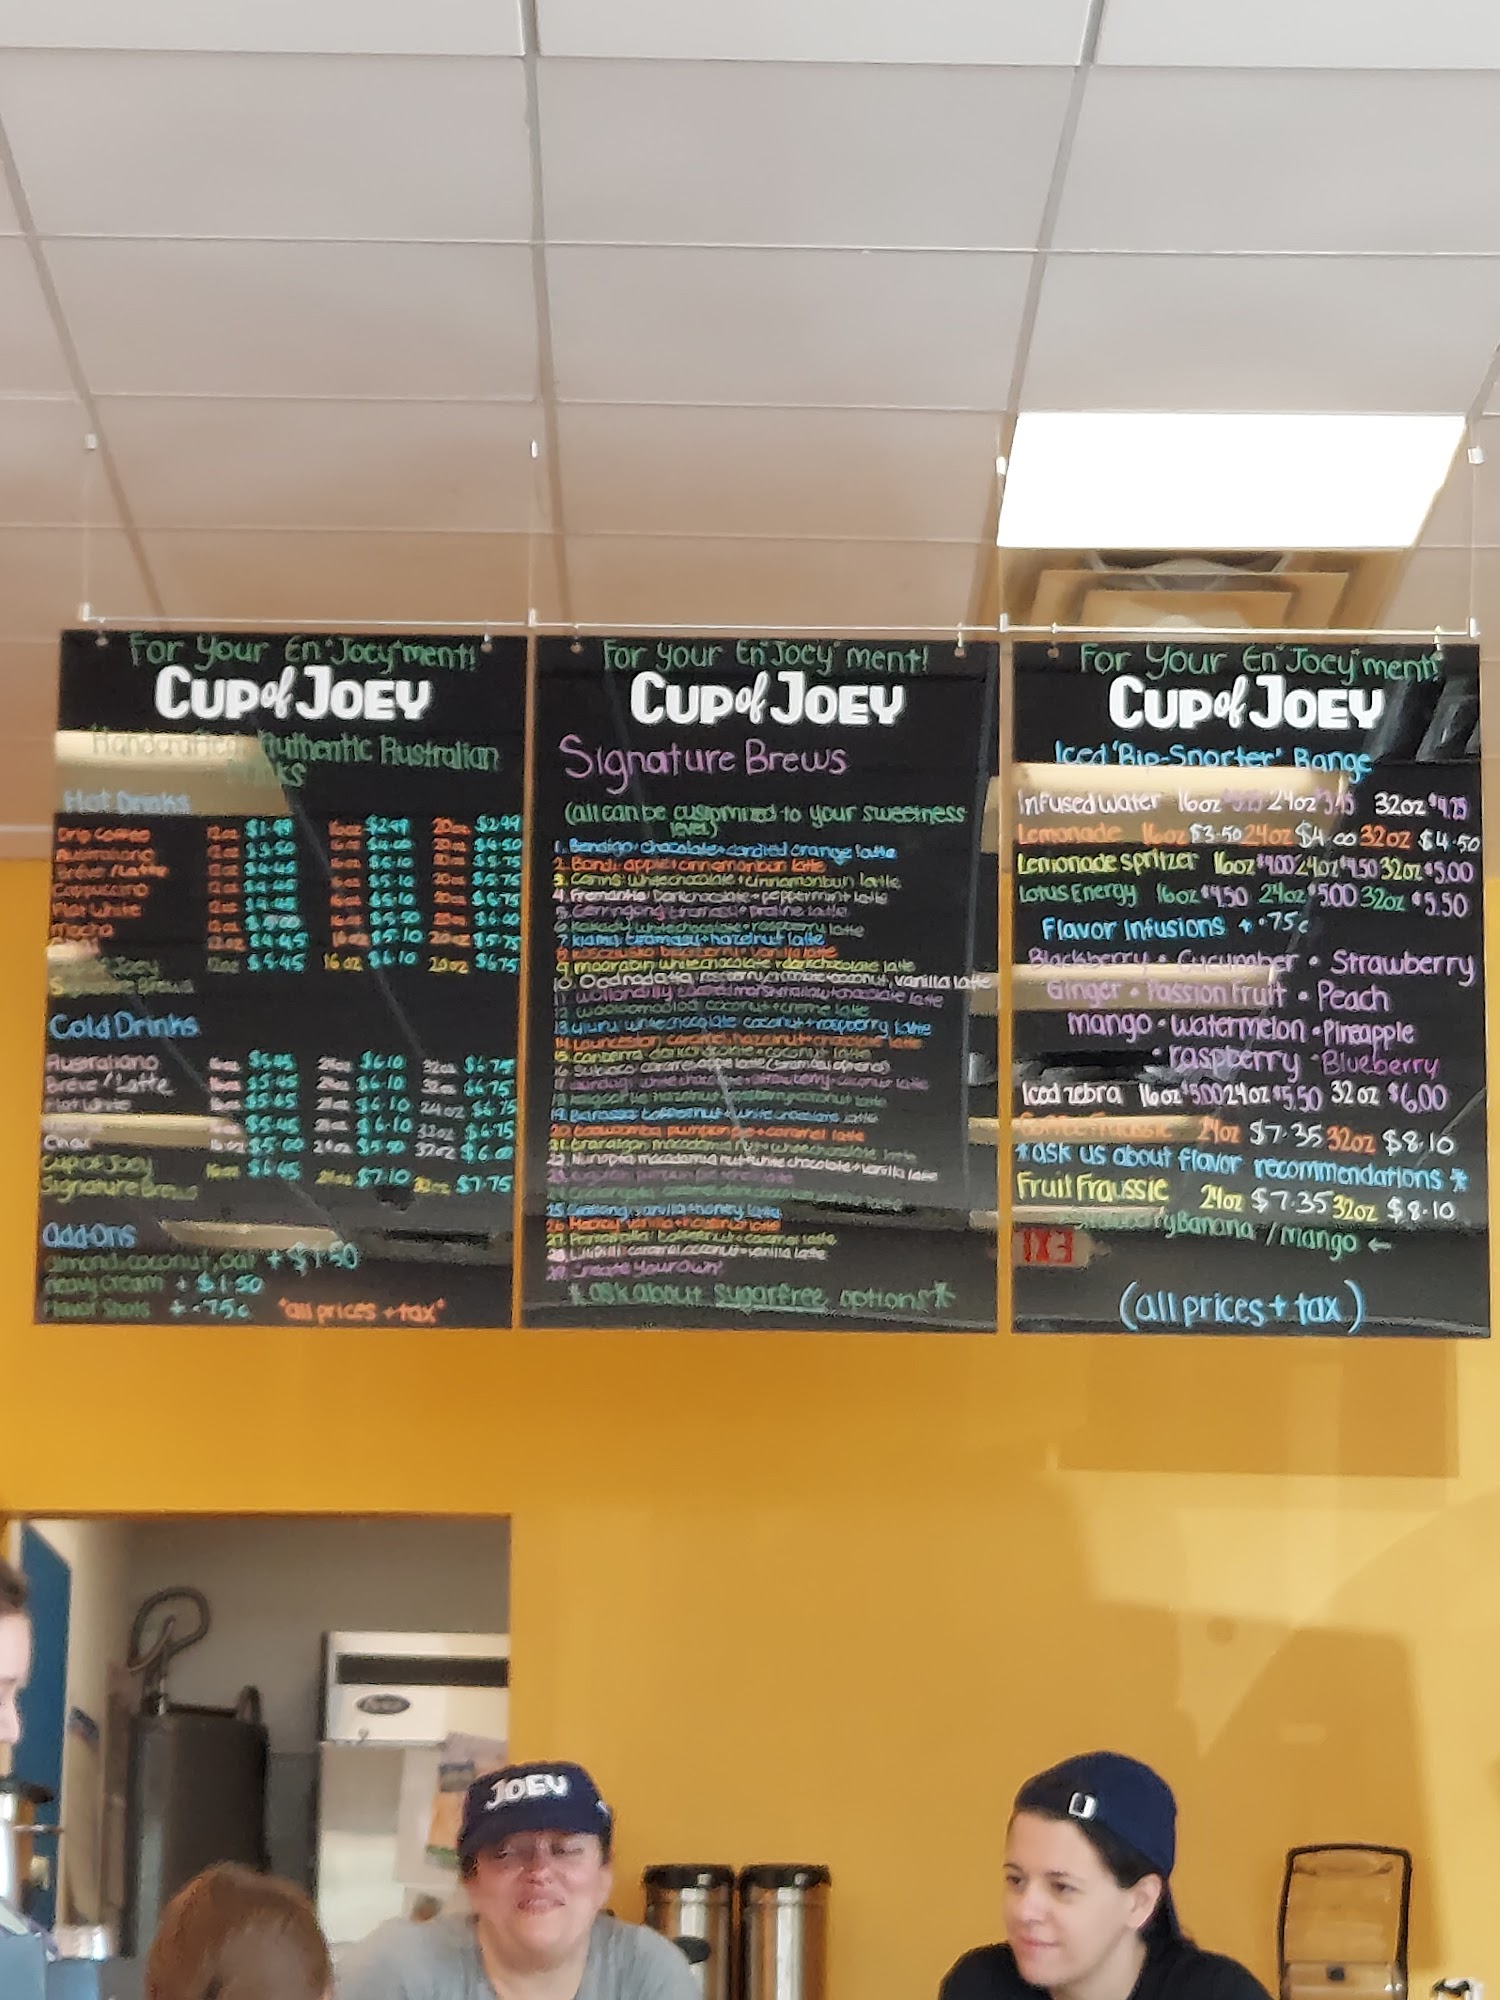 For Your En"Joey"ment!
CUP of JOEY
Handcrafted Authentic Australian
Hot Drinks
Drip Coffee 12oz $1.99 16oz $2.49 20oz $2.99
Australiano 12oz $3.50 16oz $4.00 20oz $4.50
Breve/Latte 12oz $4.45 16oz $5.10 20oz $5.75
Cappuccino 12oz $4.45 16oz $5.10 20oz $5.75
Flat White 12oz $4.45 16oz $5.10 20oz $5.75
Mocha 12oz $5.00 16oz $5.50 20oz $6.00
12oz $4.45 16oz $5.10 20oz $5.75
Joey 12oz $5.45 16oz $6.10 20oz $6.75
Signature Brews
Cold Drinks
Australiano 16oz $5.45 24oz $6.10 32oz $6.75
Breve/Latte 16oz $5.45 24oz $6.10 32oz $6.75
Flat White $5.45 $6.10 24oz $6.75
$5.45 24oz $6.10 32oz $6.75
Chai 16oz $5.00 24oz $5.50 32oz $6.00
Cup of Joey 16oz $6.45 24oz $7.10 32oz $7.75
Signature Brews
Add-Ons
almond, coconut, oat + $1.50
Heavy Cream + $1.50
Flavor Shots + .75c *all prices + tax*
For Your En"Joey"ment!
CUP of JOEY
Signature Brews
(all can be customized to your sweetness
level)
1. Bendigo: chocolate + candied orange latte
2. Bondi: apple + cinnamonbun latte
3. Cairns: white chocolate + cinnamonbun latte
4. Fremantle: Dark chocolate + peppermint latte
5. Gerringong: tiramasu + praline latte
6. Kakadu: white chocolate + raspberry latte
7. Kiama: tiramasu + hazelnut latte
8. Kosciusko: blackberry + vanilla latte
9. Moorabin: white chocolate + dark chocolate latte
10. Oodnadatta: raspberry, chocolate, coconut, vanilla latte
11. Wollondilly: toasted marshmallow + chocolate latte
12. Woolloomooloo: coconut + creme latte
13. Uluru: white chocolate coconut + raspberry latte
14. Launceston: caramel, hazelnut + chocolate latte
15. Canberra: dark chocolate + coconut latte
16. caramel apple latte (
17. white chocolate + strawberry + coconut latte
18. raspberry coconut latte
19. Barossa: toffeenut + white chocolate latte
20. Toowoomba: pumpkin + caramel latte
21. macadamia nut + white chocolate latte
22. macadamia nut + white chocolate + vanilla latte
23. pumpkin latte
25. Geelong: vanilla + honey latte
26. vanilla + hazelnut latte
27. toffeenut + caramel latte
28. Lillipilli: caramel, coconut + vanilla latte
29. Create Your own!
* ask about sugarfree options *
For Your En"Joey"ment!
CUP of JOEY
Iced 'Rip-Snorter' Range
Infused water 16oz 24oz 32oz $4.25
Lemonade 16oz $3.50 24oz $4.00 32oz $4.50
Lemonade spritzer 16oz $4.00 24oz $4.50 32oz $5.00
Lotus Energy 16oz $4.50 24oz $5.00 32oz $5.50
Flavor Infusions + .75c
Blackberry • Cucumber • Strawberry
Ginger • Passion Fruit • Peach
Mango • Watermelon • Pineapple
• raspberry • Blueberry
Iced zebra 16oz $5.00 24oz $5.50 32oz $6.00
Coffee Fraussie 24oz $7.35 32oz $8.10
*ask us about flavor recommendations *
Fruit Fraussie 24oz $7.35 32oz $8.10
Strawberry Banana / Mango ←
EXIT
(all prices + tax)
JOEY